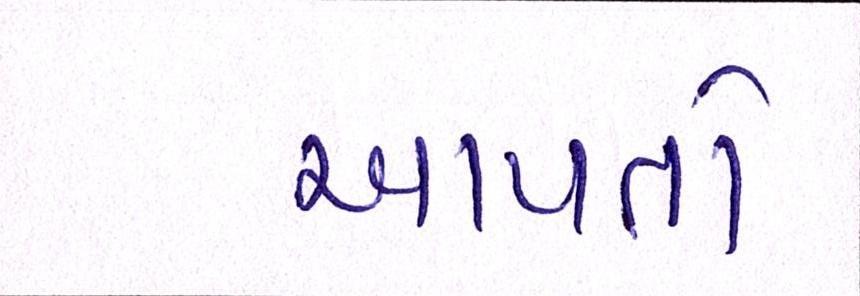 આપતો